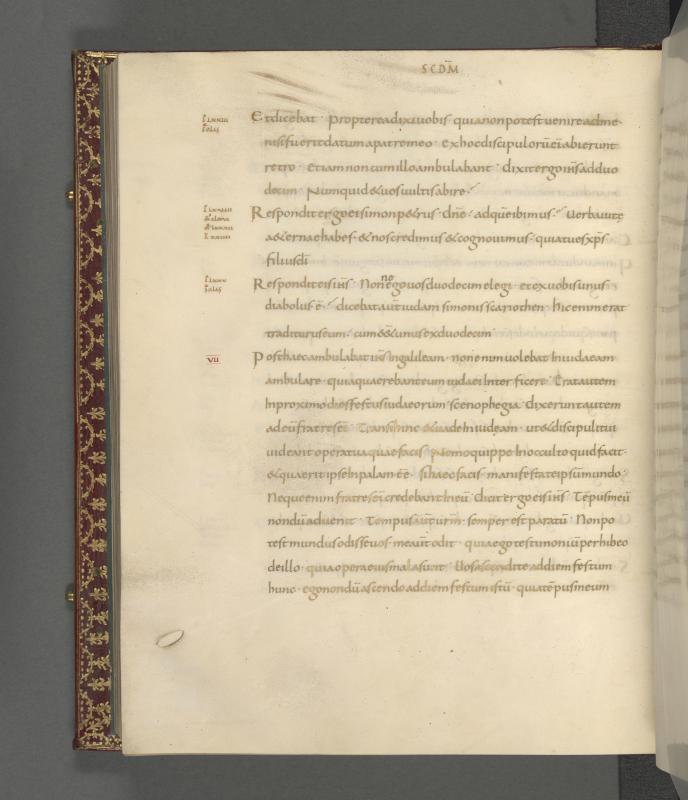 SCDM̄
Et dicebat · Propterea dixi uobis · quia non potest uenire ad me ·
nisi fuerit datum a patre meo · Ex hoc discipulorū ei abierunt
retro · et iam non cum illo ambulabant · dixit ergo ihs̄ ad duo
decim · Numquid & uos uultis abire ·
Respondit ergo ei simon p&rus · dn̄e · ad quē ibimus · Uerba uitę
a&ernae habes · & nos credimus & cognouimus · quia tu es xp̄s
filius dī
Respondit eis ihs̄ · Nonne ego uos duodecim elegi · et ex uobis unus
diabolus ē · dicebat aūt iudam simonis scariothen · hic enim erat
traditurus eum · cum ess& unus ex duodecim ·
VII Post haec ambulabat ihs̄ In galileam · non enim uolebat In iudaeam
ambulare · quia quaerebant eum iudaei Inter ficere · Erat autem
In proximo dies festus iudaeorum · scenophegia · dixerunt autem
ad eū fratres ei · Transi hinc & uade In iudeam · ut & discipuli tui
uideant opera tua quae facis · Nemo quippe In occulto quid facit ·
& quaerit ipse In palam ēē · si haec facis · manifesta te ipsū mundo ·
Neque enim fratres ei credebant In eū · dicit ergo eis ihs̄ · Tēpus meū
nondū aduenit · Tempus aūt urm̄ · semper est paratū · Non po
test mundus odisse uos · me aūt odit · quia ego testimoniū perhibeo
de illo · quia opera eius mala sunt · Uos ascendite ad diem festum
hunc · ego nondū ascendo ad diem festum istū · quia tēpus meum